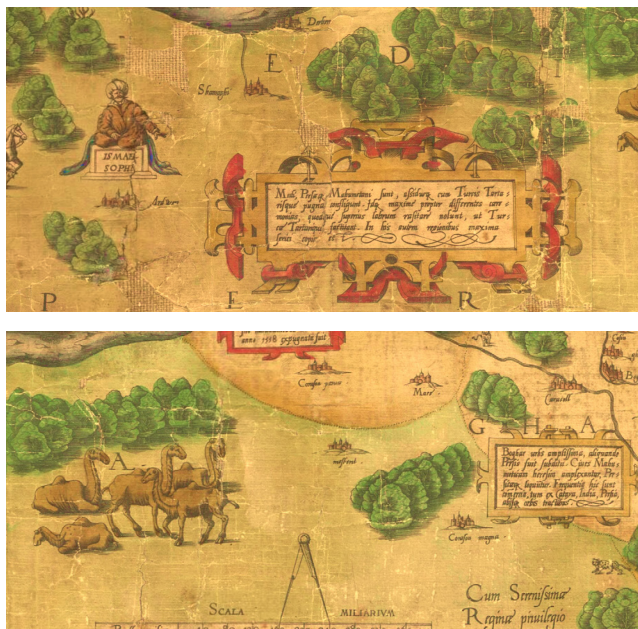 E D I
Shamaghi
Medi, Persæq; Mahumetani sunt, assidueq; cum Turcis Tarta=
risque pugna confligunt. Idq; maxime propter differentes cere=
monias, quodque superius labrum rasitare nolunt, ut Tur=
cæ Tartarique factitant. In his autem regionibus maxima
serici copia
P E R
anno 1558 expugnata fuit
Mare
Caracoll
G H A
A
Boghar urbs amplissima, aliquando
Persis fuit subdita. Cives Mahu=
metanam heresim amplexantur, Per=
siceq; loquuntur. Frequentia hic sunt
comercia, tum ex Cataya, India, Persia,
aliisq; orbis tractibus.
Corasan magna
SCALA MILIARIVM
Cum Serenissimæ
Reginæ privilegio